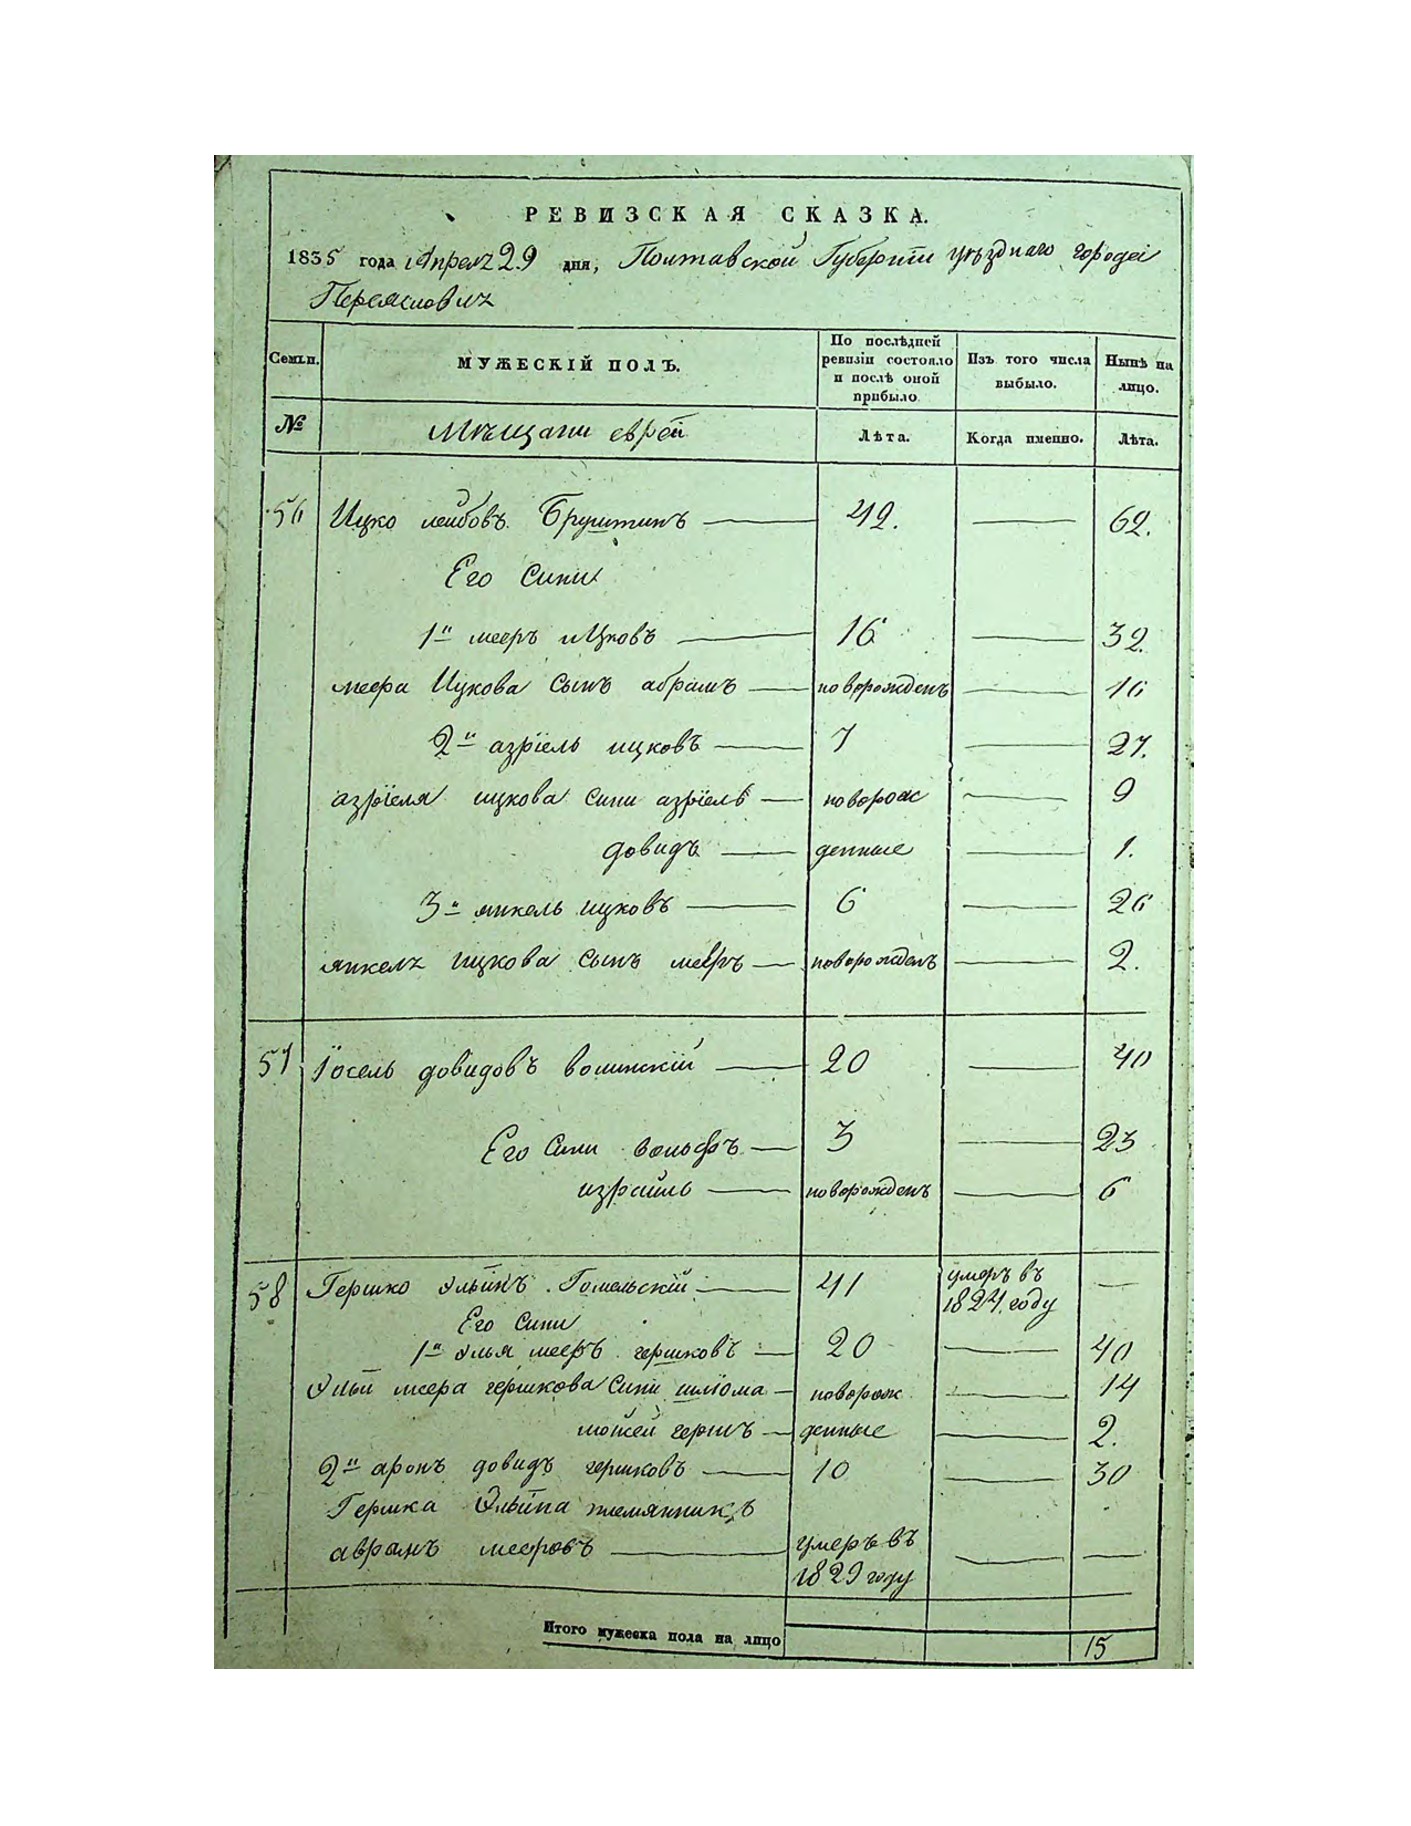 РЕВИЗСКАЯ СКАЗКА.
1835 года Апреля 29 дня, Полтавской Губернии уѣзднаго города
Переяслова
Семьи. МУЖЕСКІЙ ПОЛЪ. По послѣдней ревизіи состояло и послѣ оной прибыло Изъ того числа выбыло. Нынѣ на лицо.
№ Мѣщани еврей Лѣта. Когда именно. Лѣта.
56 Ицко лейбовъ Бруштинъ 42. 62.
Его сини
1й мееръ ицковъ 16 32.
меера Ицкова сынъ абрамъ новорожденъ 16
2й азріель ицковъ 7 27.
азріеля ицкова сини азріель новорож 9
довидъ денные 1.
3й янкель ицковъ 6 26
янкеля ицкова сынъ мееръ новорожденъ 2.
57 Іосель довидовъ волинскій 20 40
Его сини вольфъ 3 23
израиль новорожденъ 6
58 Гершко Эльинъ Гомельскій 41 умеръ въ
1824 году
Его сини
1й Элья мееръ гершковъ 20 40
Эльи меера гершкова сини шлiома новорож 14
мошей гершъ денные 2.
2й аронъ довидъ гершковъ 10 30
Гершка Эльина племянникъ
аврамъ мееровъ умеръ въ
1829 году
Итого мужеска пола на лицо 15